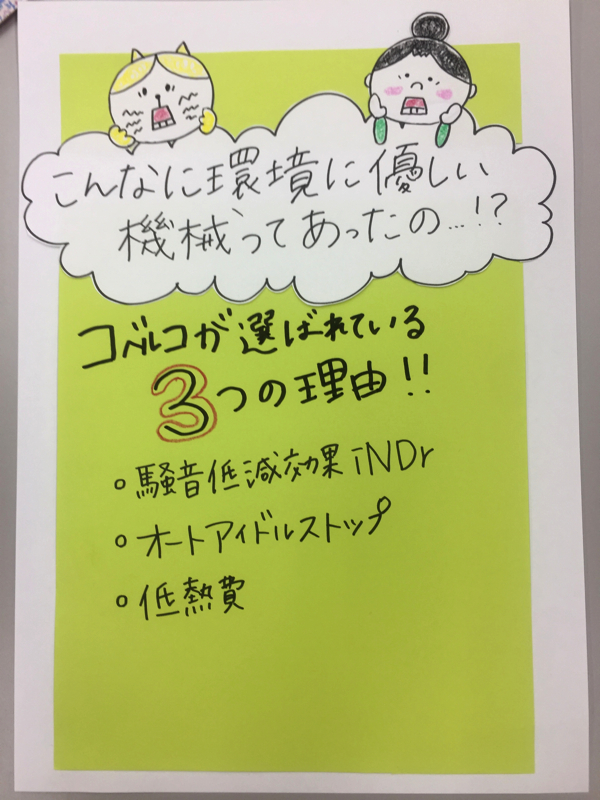 こんなに環境に優しい
機械ってあったの…!?
コベルコが選ばれている
3つの理由!!
○騒音低減効果iNDr
○オートアイドルストップ
○低熱費